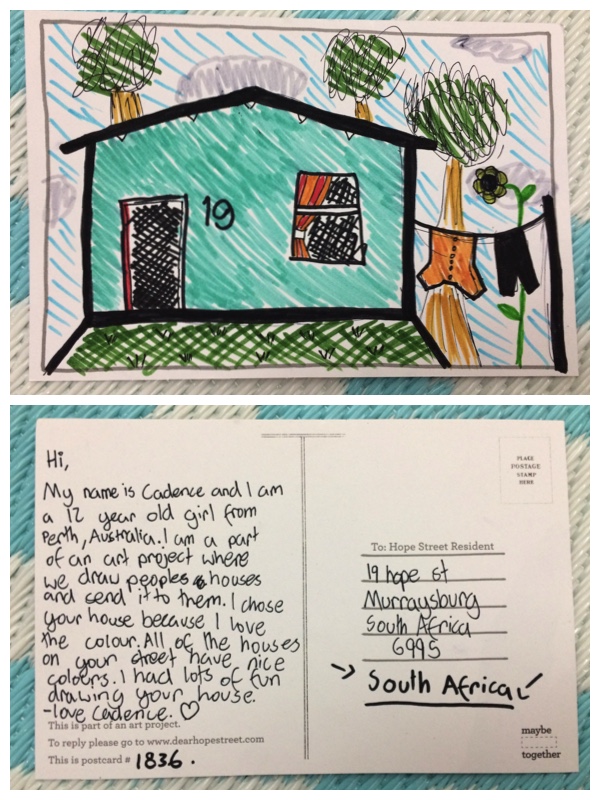 19
Hi,
My name is Cadence and I am
a 12 year old girl from
Perth, Australia. I am a part
of an art project where
we draw peoples houses
and send it to them. I chose
your house because I love
the colour. All of the houses
on your street have nice
colours. I had lots of fun
drawing your house.
-love Cadence. ♡
This is part of an art project.
To reply please go to www.dearhopestreet.com
This is postcard # 1836.
PLACE
POSTAGE
STAMP
HERE
To: Hope Street Resident
19 hope st
Murraysburg
South Africa
6995
South Africa
maybe
together